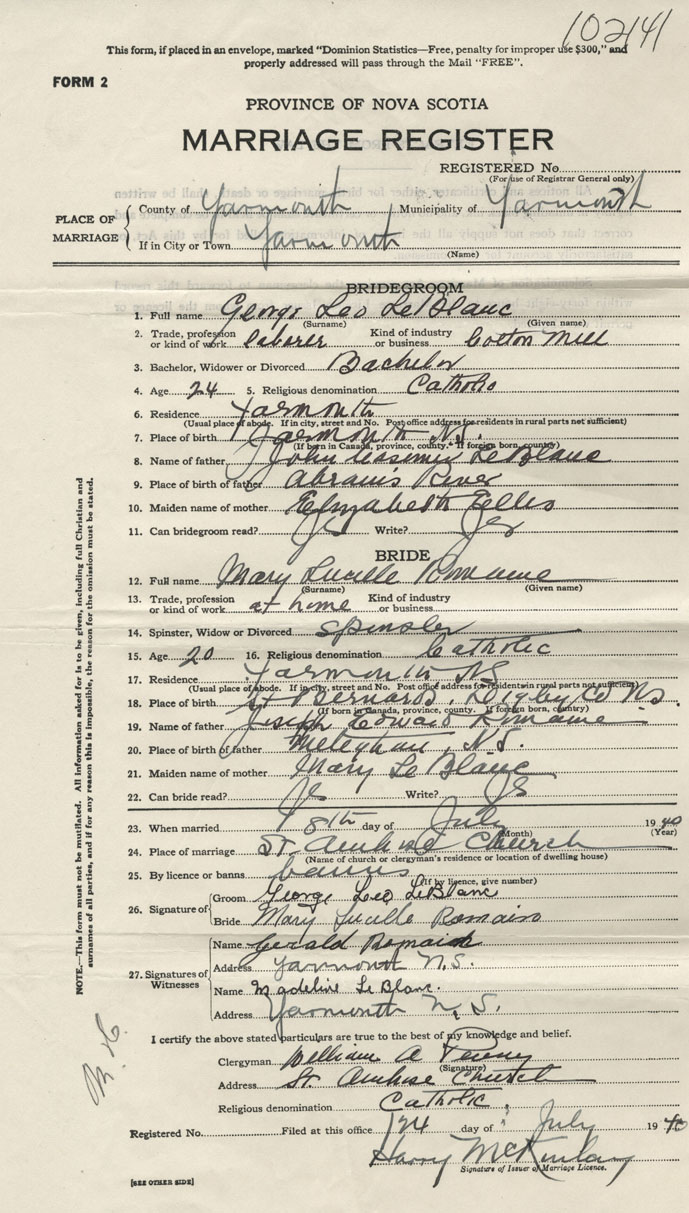 102141
This form, if placed in an envelope, marked "Dominion Statistics—Free, penalty for improper use $300," and
properly addressed will pass through the Mail "FREE".
FORM 2
PROVINCE OF NOVA SCOTIA
MARRIAGE REGISTER
REGISTERED No.
(For use of Registrar General only)
PLACE OF MARRIAGE
County of Yarmouth Municipality of Yarmouth
If in City or Town Yarmouth
(Name)
BRIDEGROOM
1. Full name George Leo LeBlanc
(Surname) (Given name)
2. Trade, profession or kind of work laborer Kind of industry or business Cotton Mill
3. Bachelor, Widower or Divorced Bachelor
4. Age 24 5. Religious denomination Catholic
6. Residence Yarmouth
(Usual place of abode. If in city, street and No. Post office address for residents in rural parts not sufficient)
7. Place of birth Yarmouth N.S.
(If born in Canada, province, county. If foreign born, country)
8. Name of father John LeBlanc
9. Place of birth of father Abrams River
10. Maiden name of mother Elizabeth
11. Can bridegroom read? Yes Write? Yes
BRIDE
12. Full name Mary Lucille Romaine
(Surname) (Given name)
13. Trade, profession or kind of work at home Kind of industry or business
14. Spinster, Widow or Divorced Spinster
15. Age 20 16. Religious denomination Catholic
17. Residence Yarmouth NS
(Usual place of abode. If in city, street and No. Post office address for residents in rural parts not sufficient)
18. Place of birth St Bernards, Digby Co N.S.
(If born in Canada, province, county. If foreign born, country)
19. Name of father Joseph Edward Romaine
20. Place of birth of father Meteghan, N.S.
21. Maiden name of mother Mary Le Blanc
22. Can bride read? Yes Write? Yes
23. When married 8th day of July 1940
(Month) (Year)
24. Place of marriage St. Church
(Name of church or clergyman's residence or location of dwelling house)
25. By licence or banns banns
(If by licence, give number)
26. Signature of
Groom George Leo LeBlanc
Bride Mary Lucille Romain
27. Signatures of Witnesses
Name Gerald
Address Yarmouth N.S.
Name Madeline Le Blanc.
Address Yarmouth N.S.
I certify the above stated particulars are true to the best of my knowledge and belief.
Clergyman William A Penny
(Signature)
Address St. Church
Religious denomination Catholic
Registered No. Filed at this office day of July 1940
Harry McKinlay
Signature of Issuer of Marriage Licence.
[SEE OTHER SIDE]
NOTE.—This form must not be mutilated. All information asked for is to be given, including full Christian and
surnames of all parties, and if for any reason this is impossible, the reason for the omission must be stated.